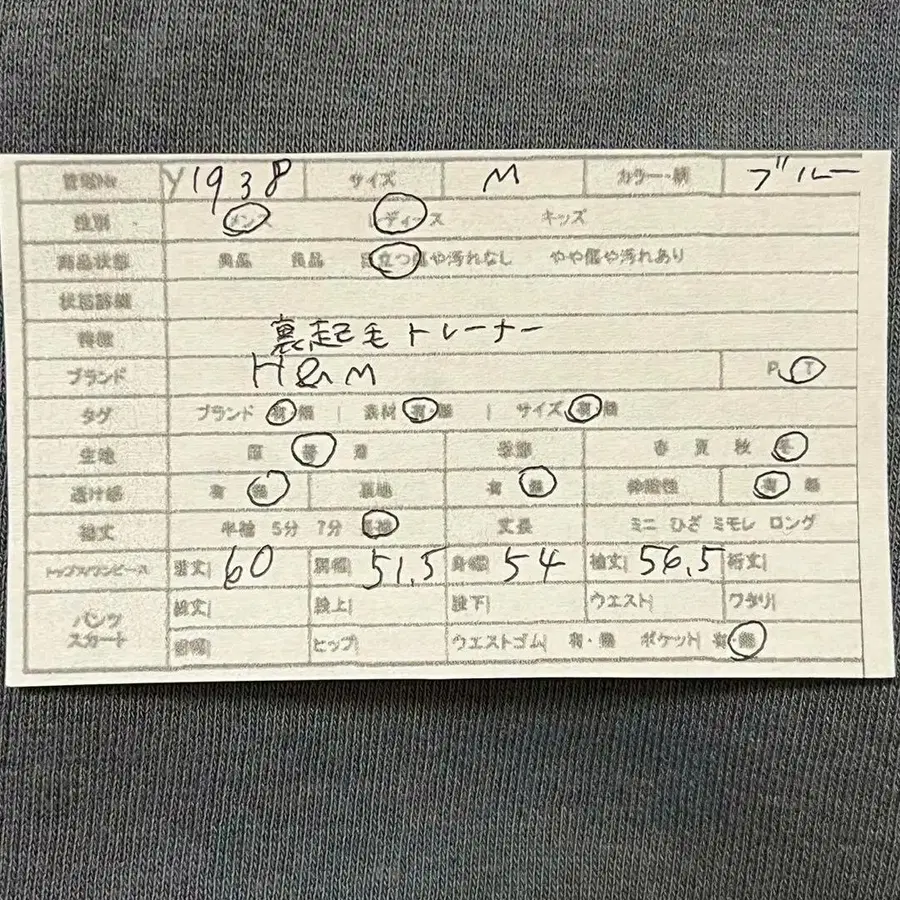 管理No Y1938 サイズ M カラー・柄 ブルー
性別 メンズ レディース キッズ
商品状態 美品 良品 目立つ傷や汚れなし やや傷や汚れあり
状態詳細
特徴 裏起毛トレーナー
ブランド H&M P T
タグ ブランド 有・無 | 素材 有・無 | サイズ 有・無
生地 厚 普 薄 季節 春 夏 秋 冬
透け感 有 無 裏地 有 無 伸縮性 有 無
袖丈 半袖 5分 7分 長袖 丈長 ミニ ひざ ミモレ ロング
トップス/ワンピース 着丈| 60 肩幅| 51.5 身幅| 54 袖丈| 56.5 裄丈|
パンツ スカート 総丈| 股上| 股下| ウエスト| ワタリ|
裾幅| ヒップ| ウエストゴム| 有・無 ポケット| 有・無